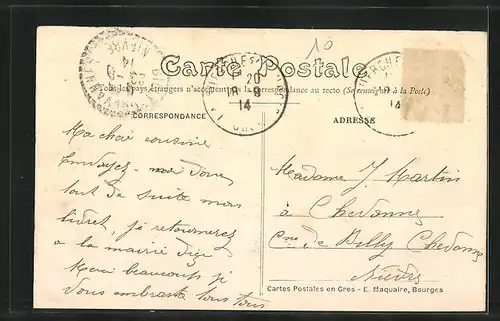 10
Carte Postale
Tous les pays étrangers n'acceptent pas la correspondance au recto (Se renseigner à la Poste)
CORRESPONDANCE
ADRESSE
20
18 - 9
14
NIÈVRE
14
Ma chère cousine
Envoyez-moi donc
tout de suite mon
livret, je retournerez
a la mairie
Merci beaucoup je
vous embrasse tous
Madame J. Martin
à Chevannes
Cne de Billy Chevannes
Nièvre
Cartes Postales en Gros - E. Maquaire, Bourges